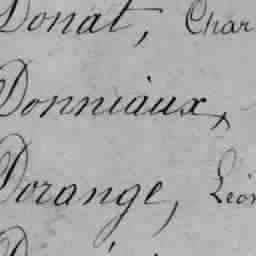 Donat, Char
Donniaux,
Dorange, Léon